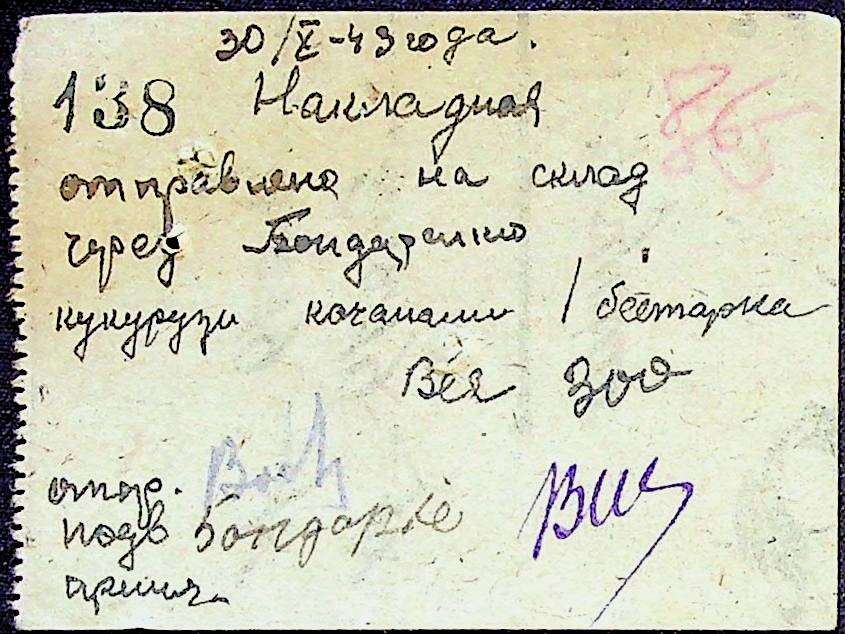 30/X-43 года.
138 Накладная 865
отправлено на склад
через Бондаренко
кукурузи кочанами / бестарка
Вес 300
отпр.
подв Бондарке
принял